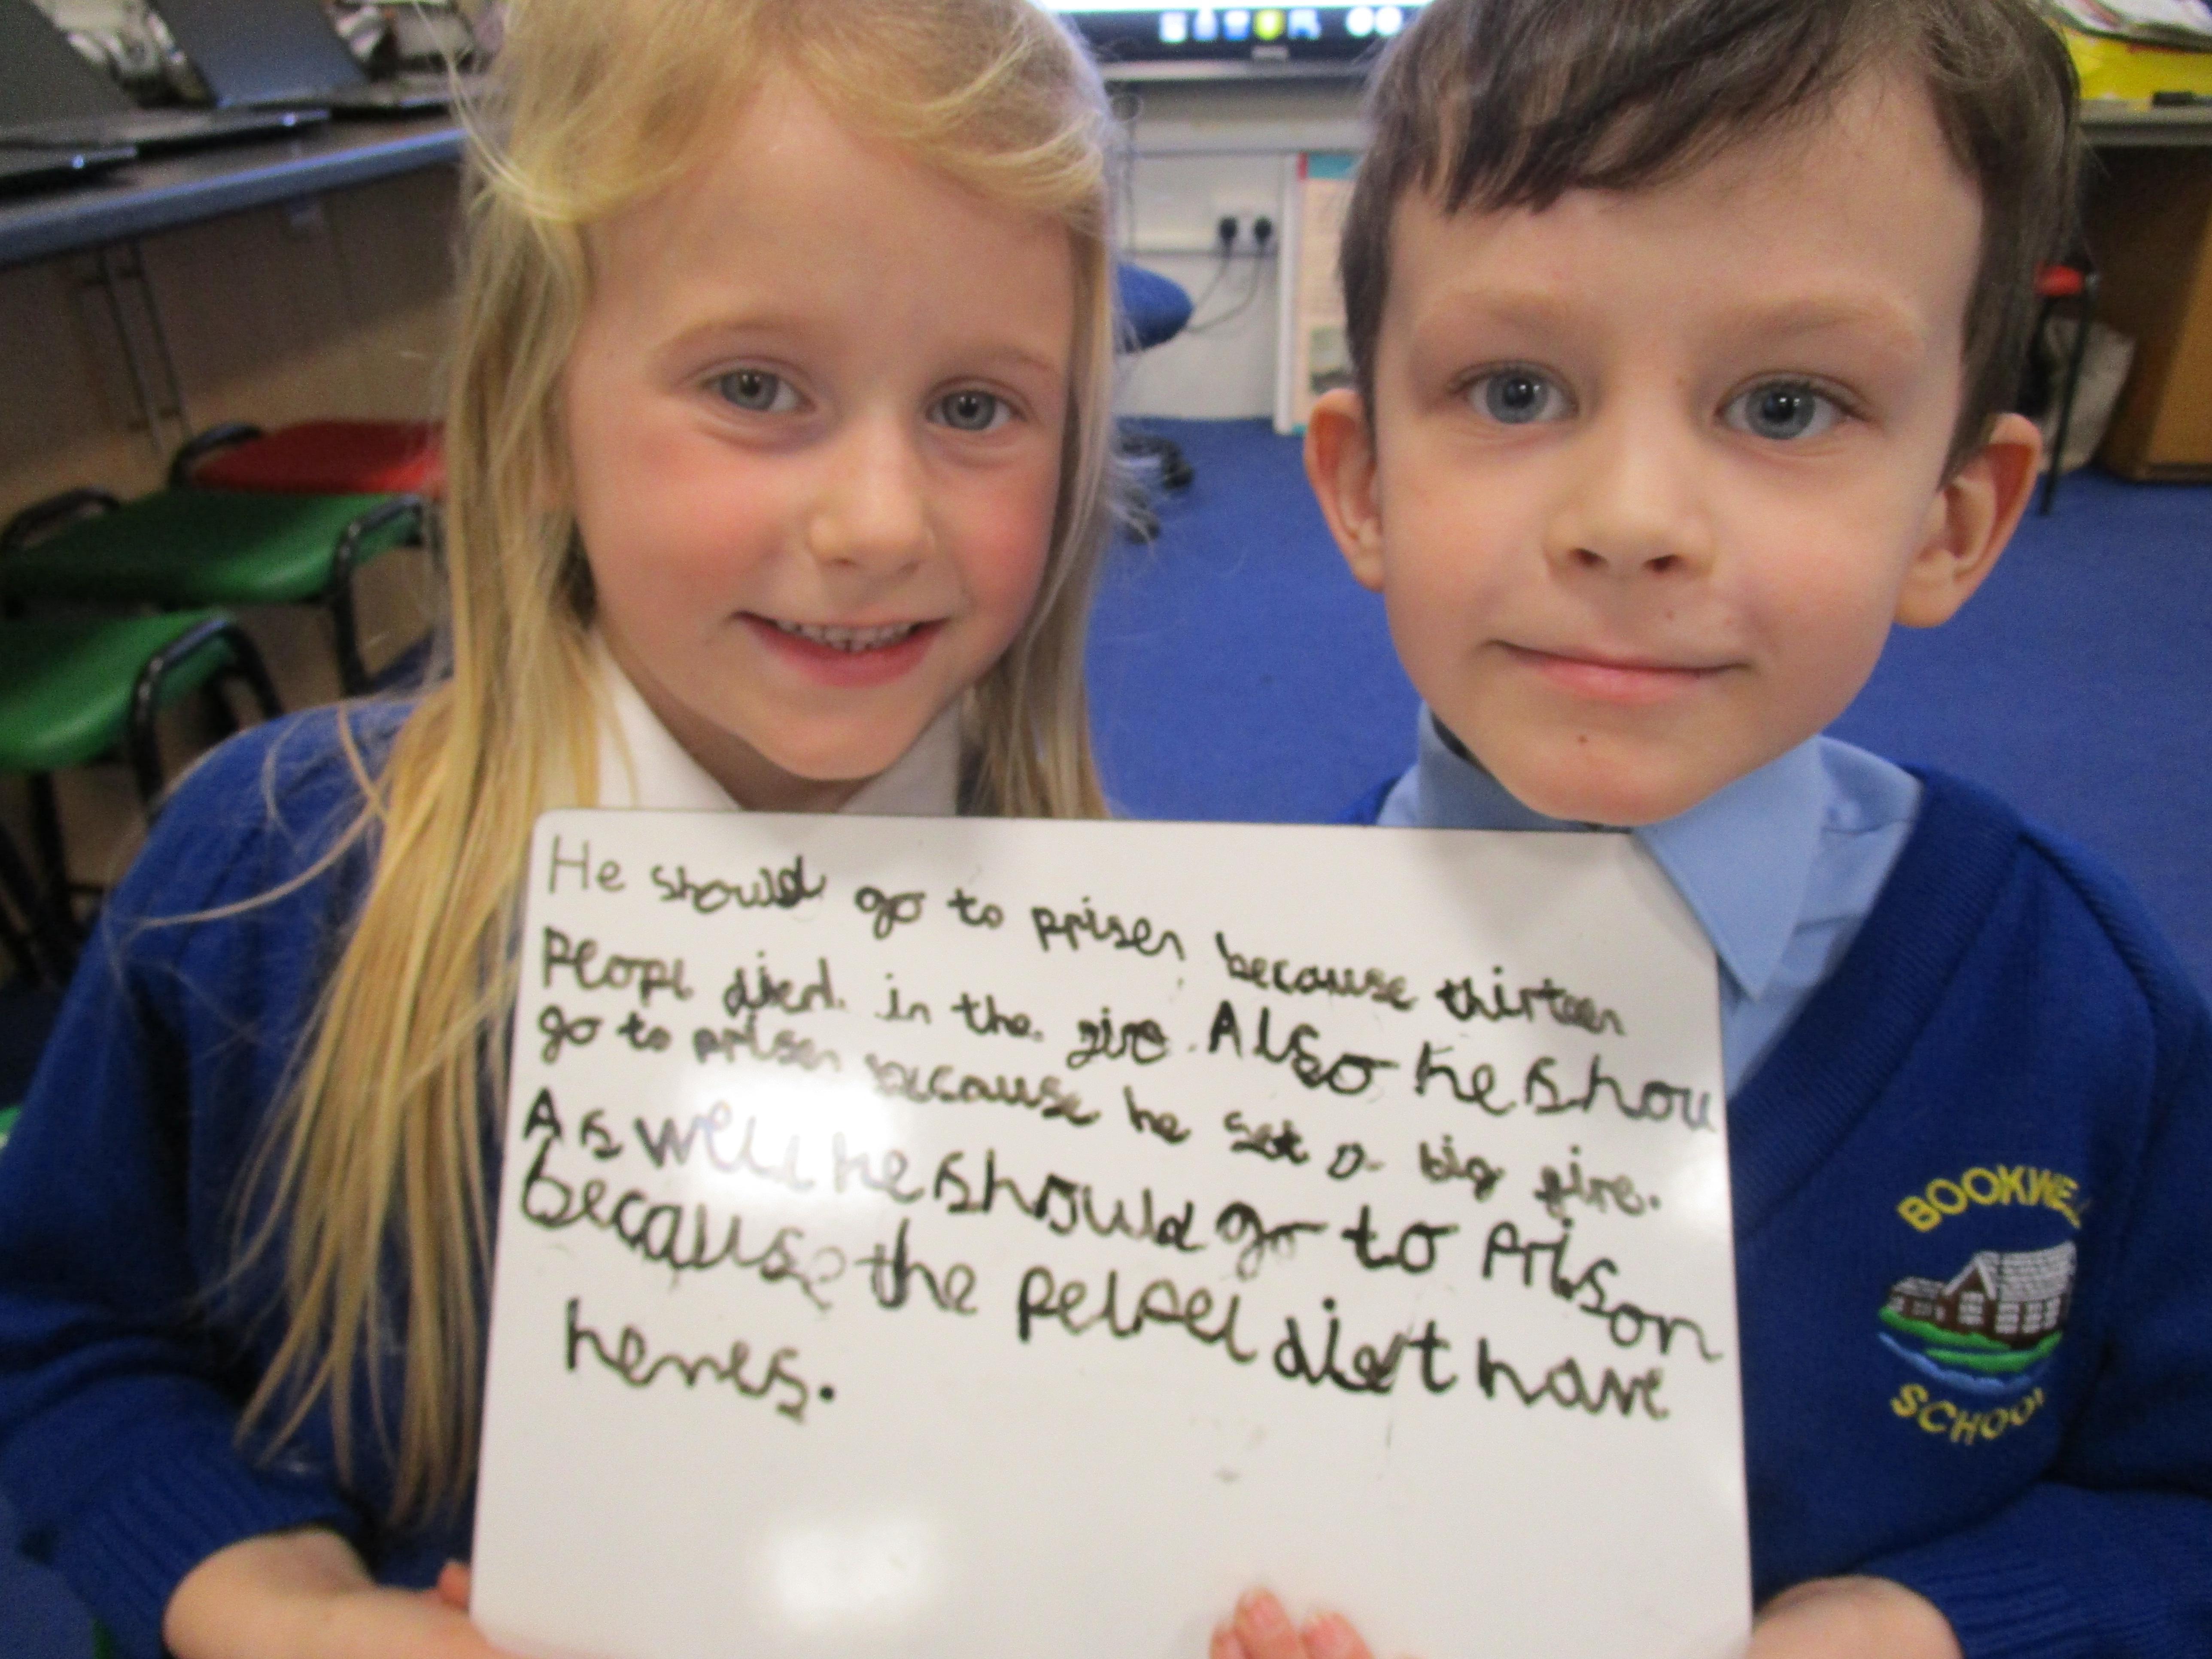 He should go to prisen because thirteen
Peopl died in the fire. Also he shou
go to prisen because he set a big fire.
As well he should go to prison
because the pelpel did't have
hemes.
BOOKWE
SCHOOL